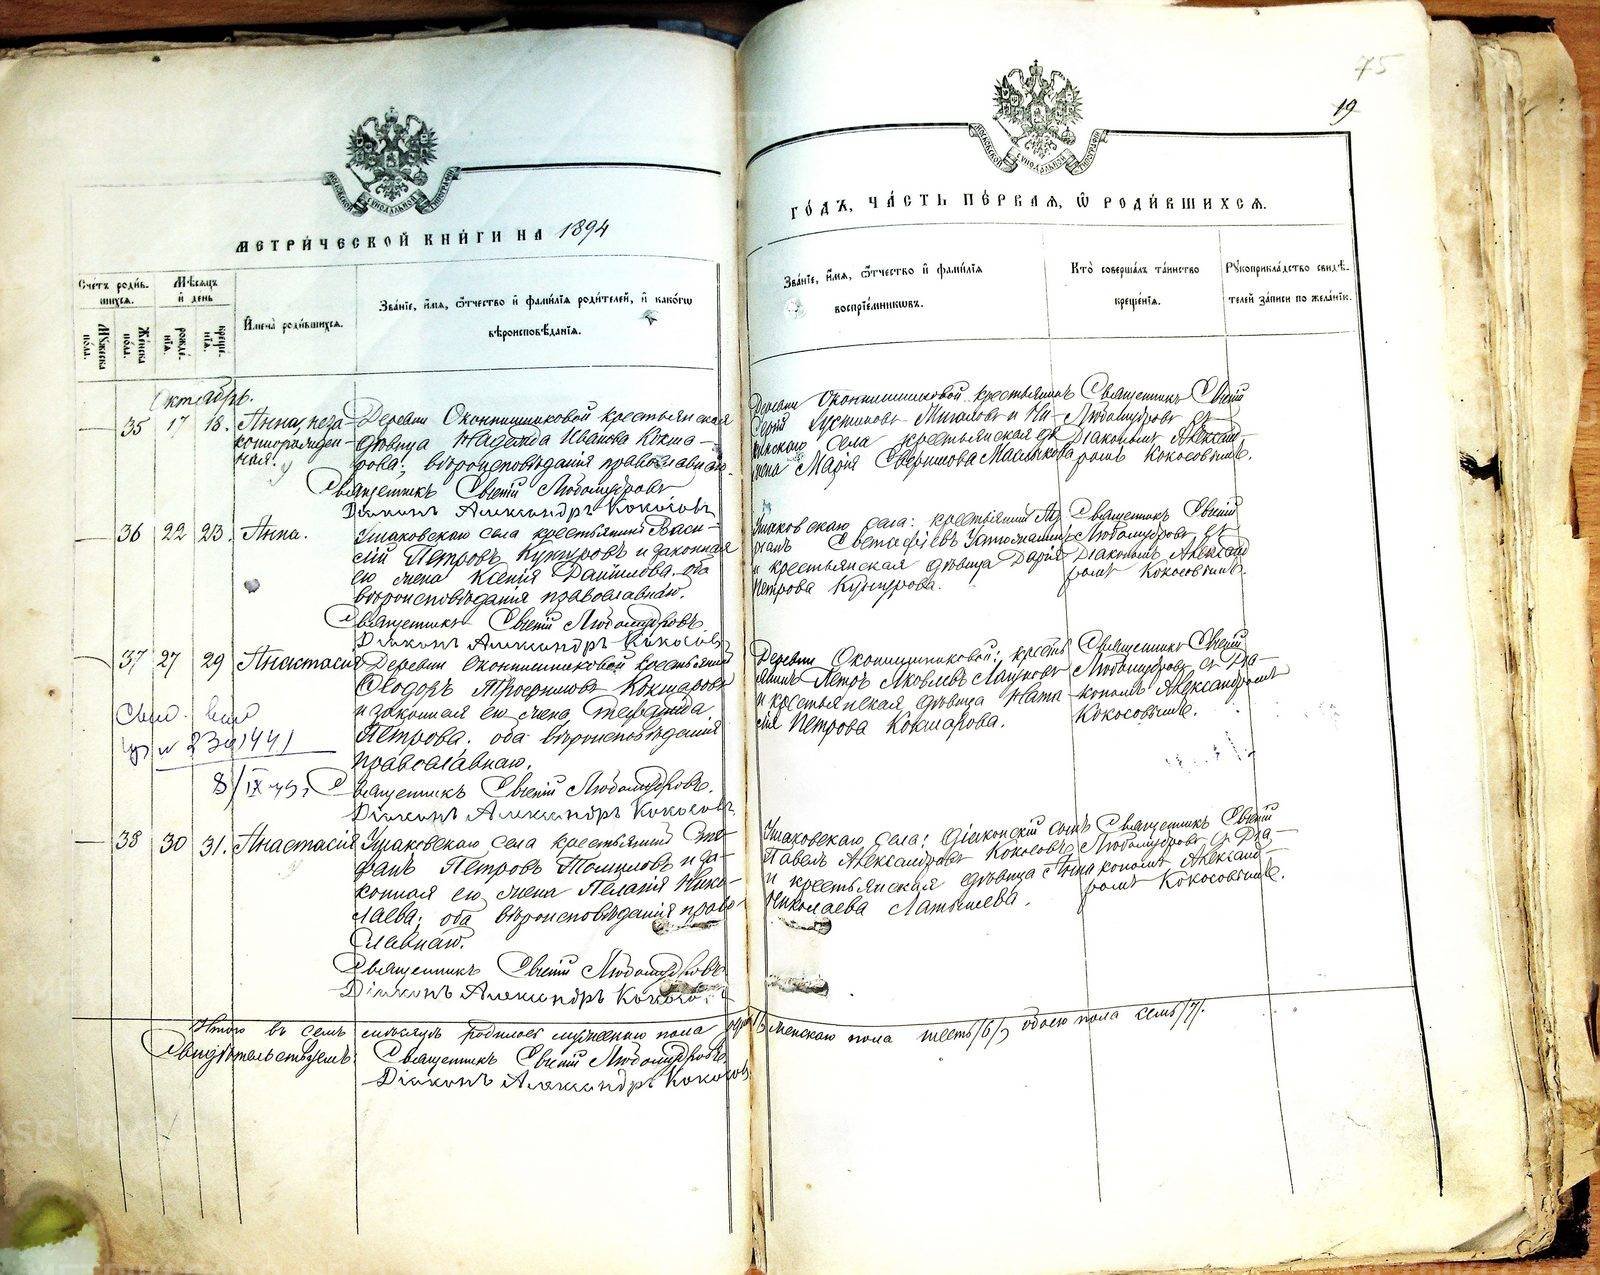 75
19
МЕТРИЧЕСКОЙ КНИГИ НА 1894
ГОДЪ, ЧАСТЬ ПЕРВАЯ, Ѿ РОДИВШИХСЯ.
Счетъ родившихся.
Мужеска пола.
Женска пола.
Мѣсяцъ и день
рожденія.
крещенія.
Имена родившихся.
Званіе, имя, ѿтчество и фамилія родителей, и какогѡ
вѣроисповѣданія.
Званіе, имя, ѿтчество и фамилія
воспріемниковъ.
Кто совершалъ таинство
крещенія.
Рукоприкладство свидѣтелей записи по желанію.
Октябрь.
35 17 18. Анна, незаконнорожденная.
Деревни Оконишниковой крестьянская
дѣвица Надежда Иванова Кокшарова;
вѣроисповѣданія православнаго.
Священникъ Евгеній Любомудровъ
Діаконъ Александръ Кокосовъ
Деревни Оконишниковой крестьянинъ
села крестьянская
Марія
Священникъ Евгеній
Любомудровъ съ
Діакономъ Александромъ Кокосовымъ.
36 22 23. Анна.
Ушаковскаго села крестьянинъ Василій
Петровъ Кунгуровъ и законная
его жена Ксенія Даніилова, оба
вѣроисповѣданія православнаго.
Священникъ Евгеній Любомудровъ
Діаконъ Александръ Кокосовъ
Ушаковскаго села: крестьянинъ
и крестьянская дѣвица Дарія
Петрова Кунгурова.
Священникъ Евгеній
Любомудровъ съ
Діакономъ Александромъ Кокосовымъ.
37 27 29 Анастасія
Деревни Оконишниковой крестьянинъ
Ѳеодоръ Трофимовъ Кокшаровъ
и законная его жена
Петрова, оба вѣроисповѣданія
православнаго.
Священникъ Евгеній Любомудровъ.
Діаконъ Александръ Кокосовъ
Деревни Оконишниковой: крестьянинъ Петръ Яковлевъ
и крестьянская дѣвица
Петрова Кокшарова.
Священникъ Евгеній
Любомудровъ съ Діакономъ Александромъ
Кокосовымъ.
38 30 31. Анастасія
Ушаковскаго села крестьянинъ Стефанъ
Петровъ Томиловъ и законная
его жена Пелагія Николаева;
оба вѣроисповѣданія православнаго.
Священникъ Евгеній Любомудровъ
Діаконъ Александръ Кокосовъ
Ушаковскаго села: діаконскій сынъ
Павелъ Александровъ Кокосовъ
и крестьянская дѣвица Анна
Николаева Латышева.
Священникъ Евгеній
Любомудровъ съ Діакономъ Александромъ Кокосовымъ.
Итого въ семъ мѣсяцѣ родилось мужескаго пола одинъ /1/, женскаго пола шесть /6/, обоего пола семь /7/.
Свидѣтельствуемъ: Священникъ Евгеній Любомудровъ
Діаконъ Александръ Кокосовъ